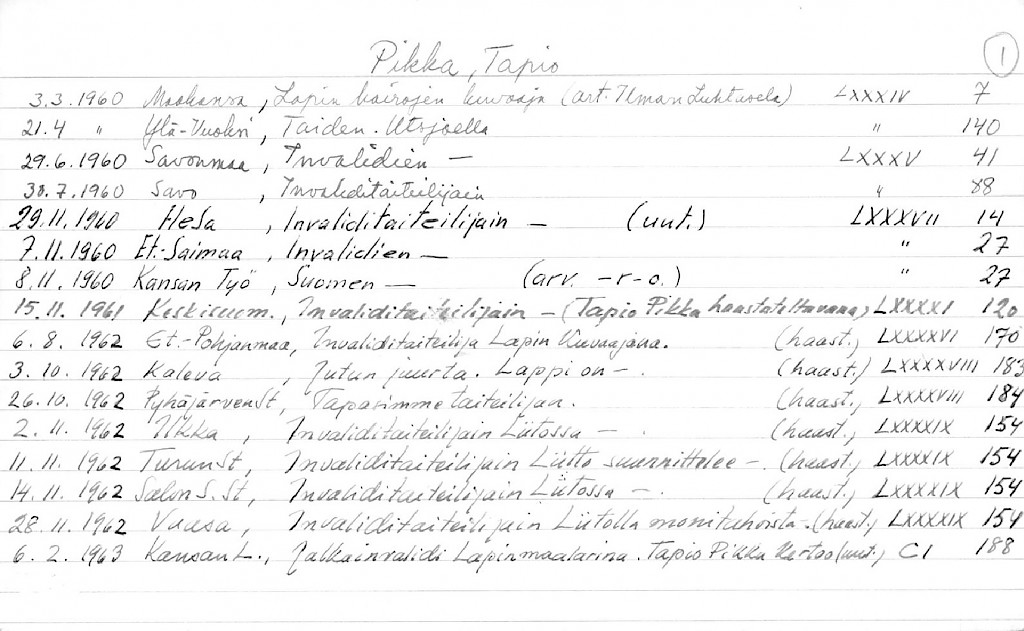 1
Pikka, Tapio
3.3.1960 Maakansa, Lapin kairojen kuvaaja (art. Ilmari Luhtasela) LXXXIV 7
21.4 " Ylä-Vuoksi, Taiden. Utsjoella " 140
29.6.1960 Savonmaa, Invalidien — LXXXV 41
30.7.1960 Savo, Invaliditaiteilijain " 88
29.11.1960 HeSa, Invaliditaiteilijain — (uut.) LXXXVII 14
7.11.1960 Et.-Saimaa, Invalidien — " 27
8.11.1960 Kansan Työ, Suomen — (arv. -r-o.) " 27
15.11.1961 Keskisuom., Invaliditaiteilijain — (Tapio Pikka haastateltavana) LXXXXI 120
6.8.1962 Et.-Pohjanmaa, Invaliditaiteilija Lapin Kuvaajana. (haast.) LXXXXVI 170
3.10.1962 Kaleva, Jutun juurta. Lappi on —. (haast.) LXXXXVIII 183
26.10.1962 PyhäjärvenSt, Tapasimme taiteilijan. (haast.) LXXXXVIII 184
2.11.1962 Ilkka, Invaliditaiteilijain Liitossa —. (haast.) LXXXXIX 154
11.11.1962 TurunSt, Invaliditaiteilijain Liitto suunnittelee —. (haast.) LXXXXIX 154
14.11.1962 Salon S. St, Invaliditaiteilijain Liitossa —. (haast.) LXXXXIX 154
28.11.1962 Vaasa, Invaliditaiteilijain Liitolla monitahoista. (haast.) LXXXXIX 154
6.2.1963 Kansan L., Jalkainvalidi Lapinmaalarina. Tapio Pikka kertoo (uut.) CI 188